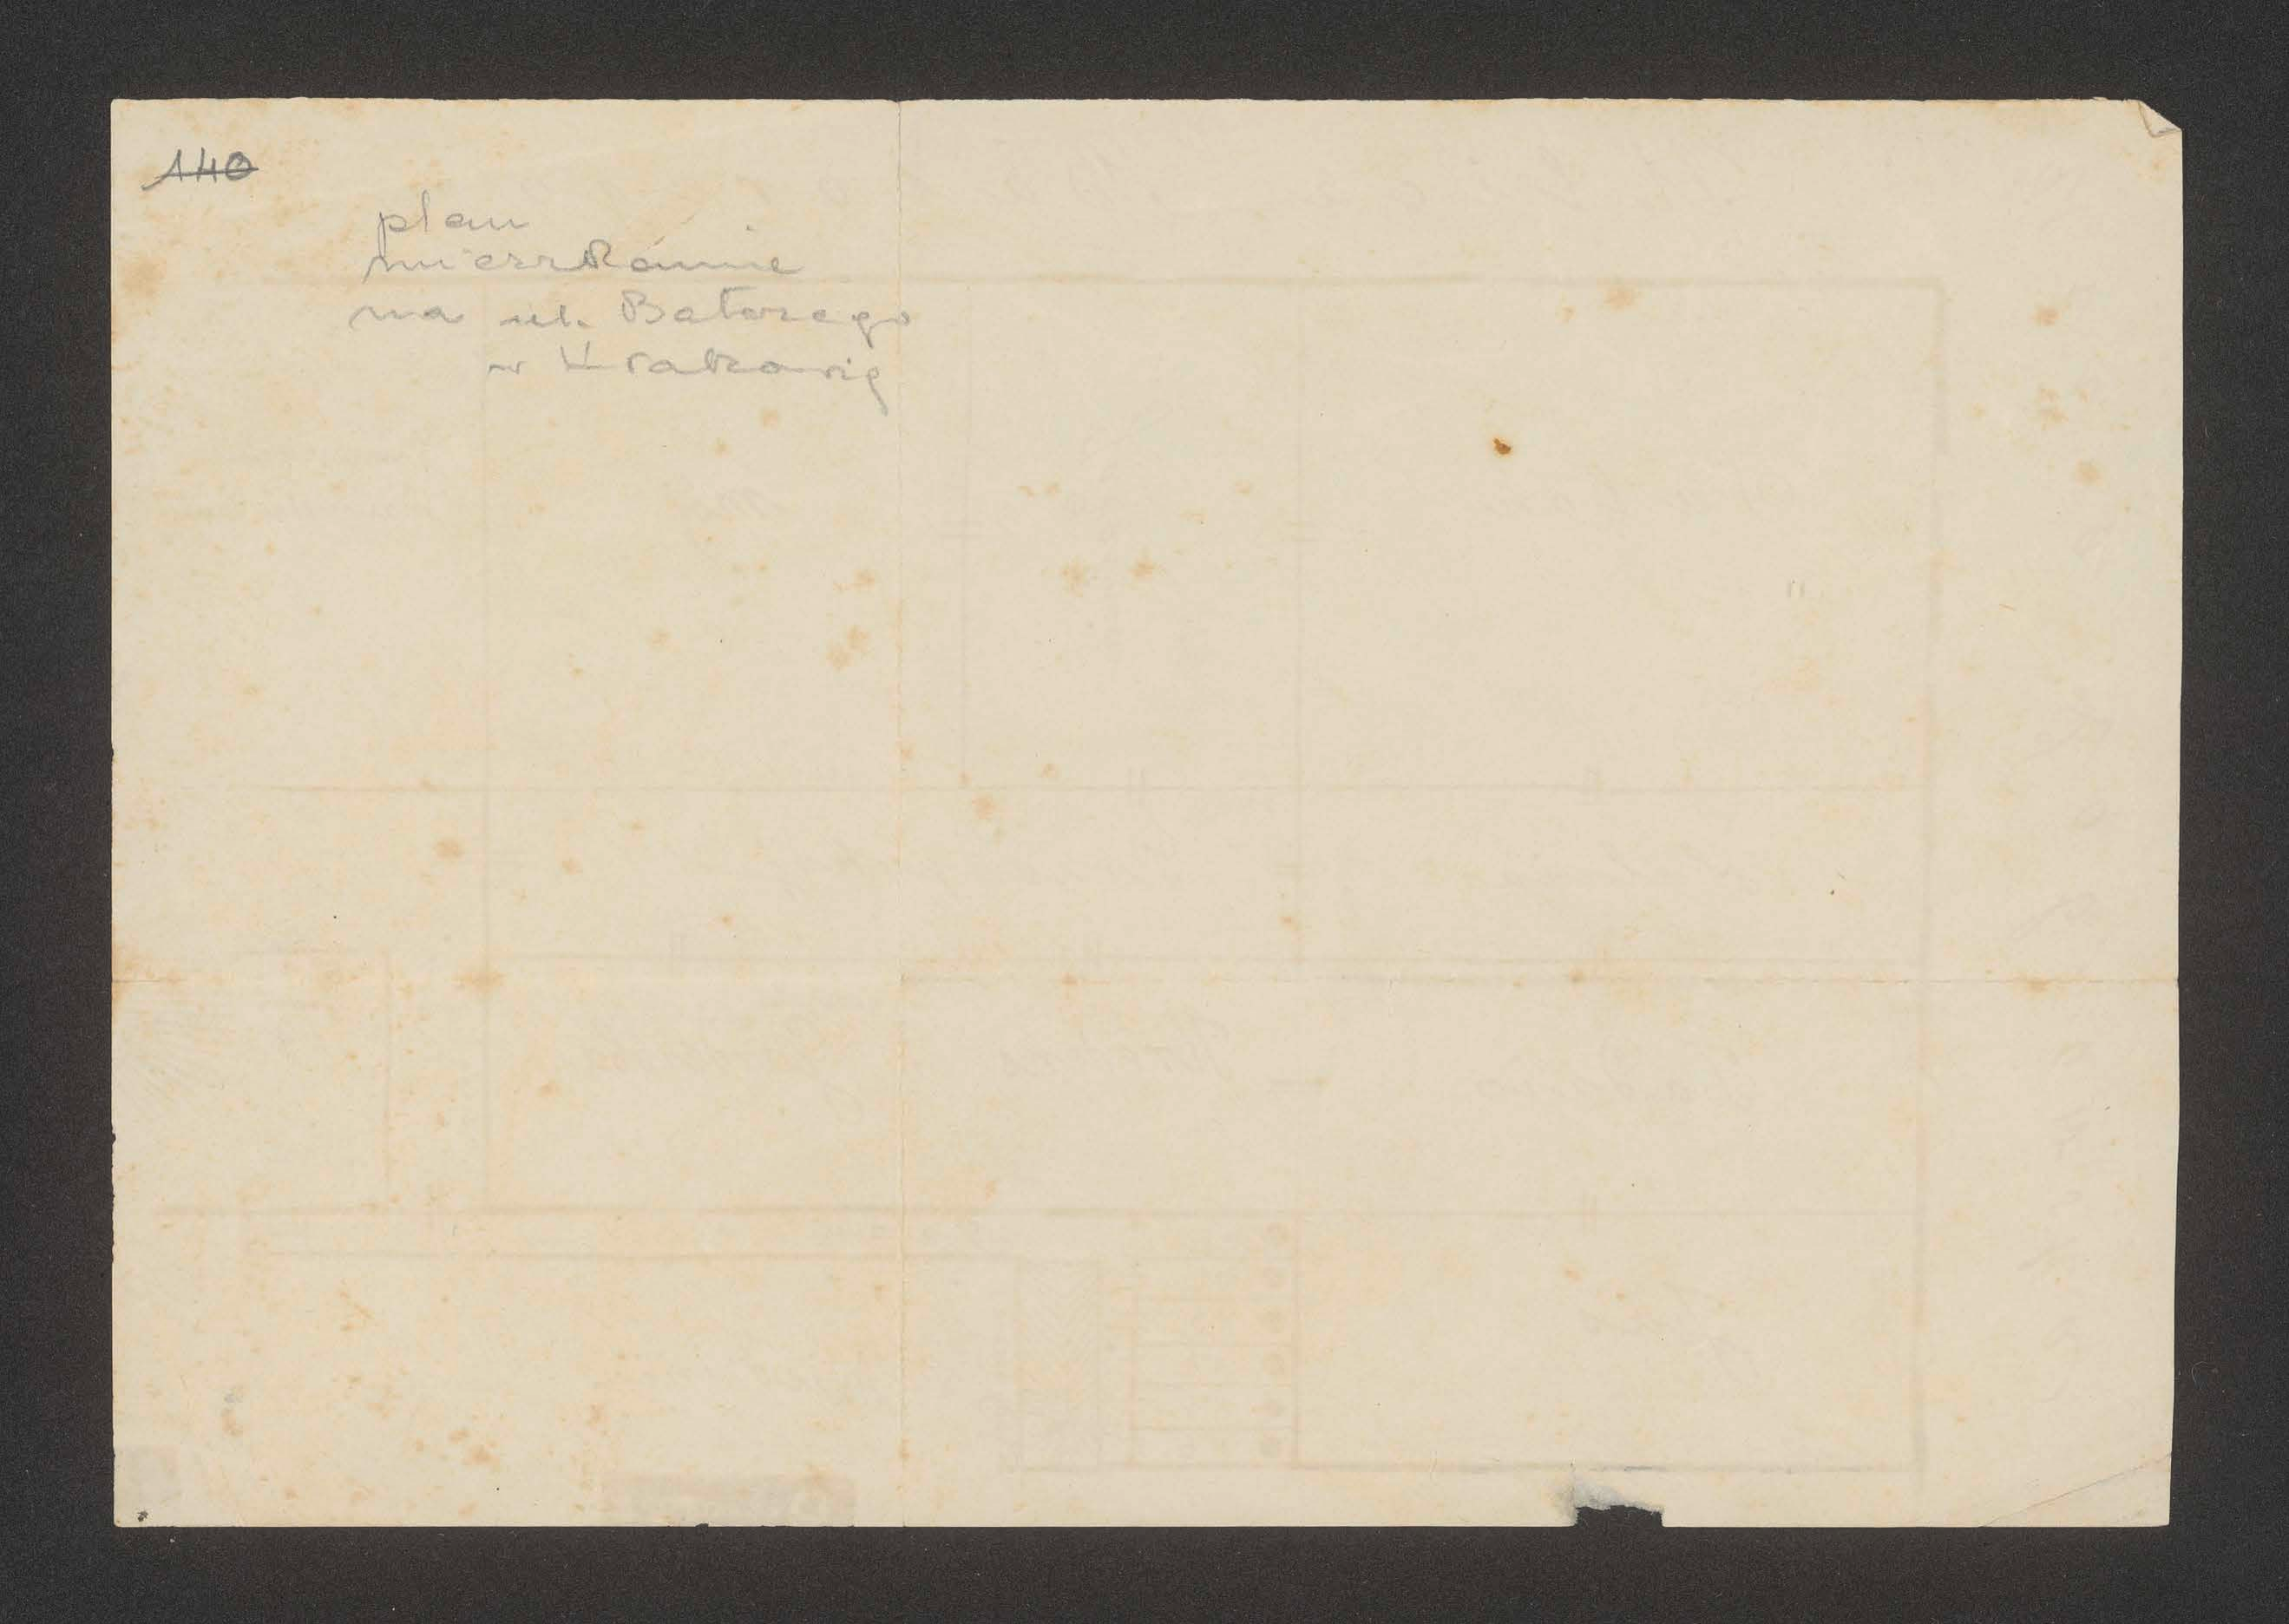 140
plan
mieszkanie
na ul. Batorego
w Krakowie